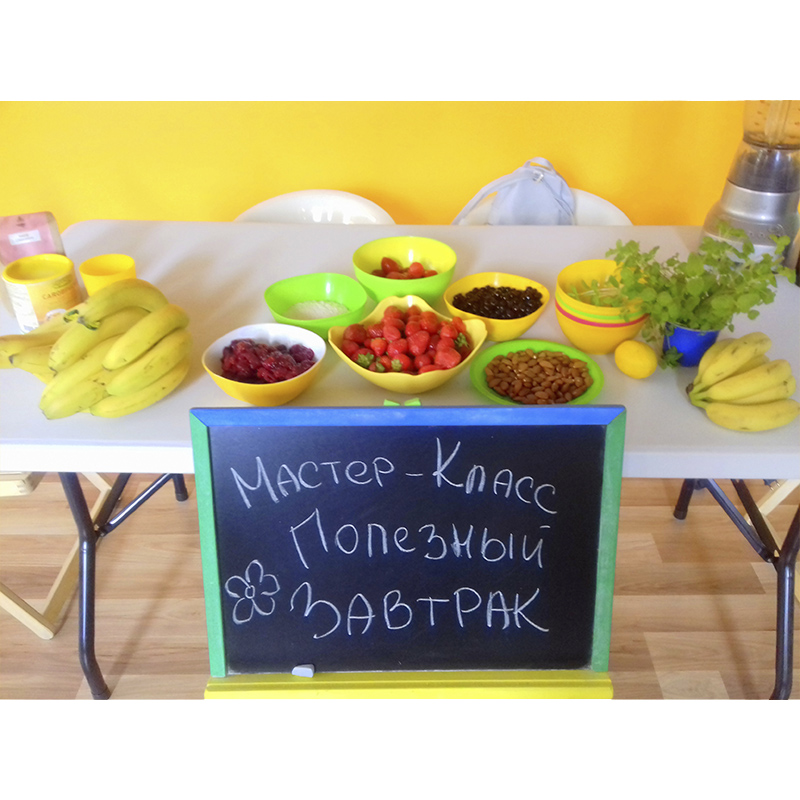 Мастер-Класс
Полезный
Завтрак